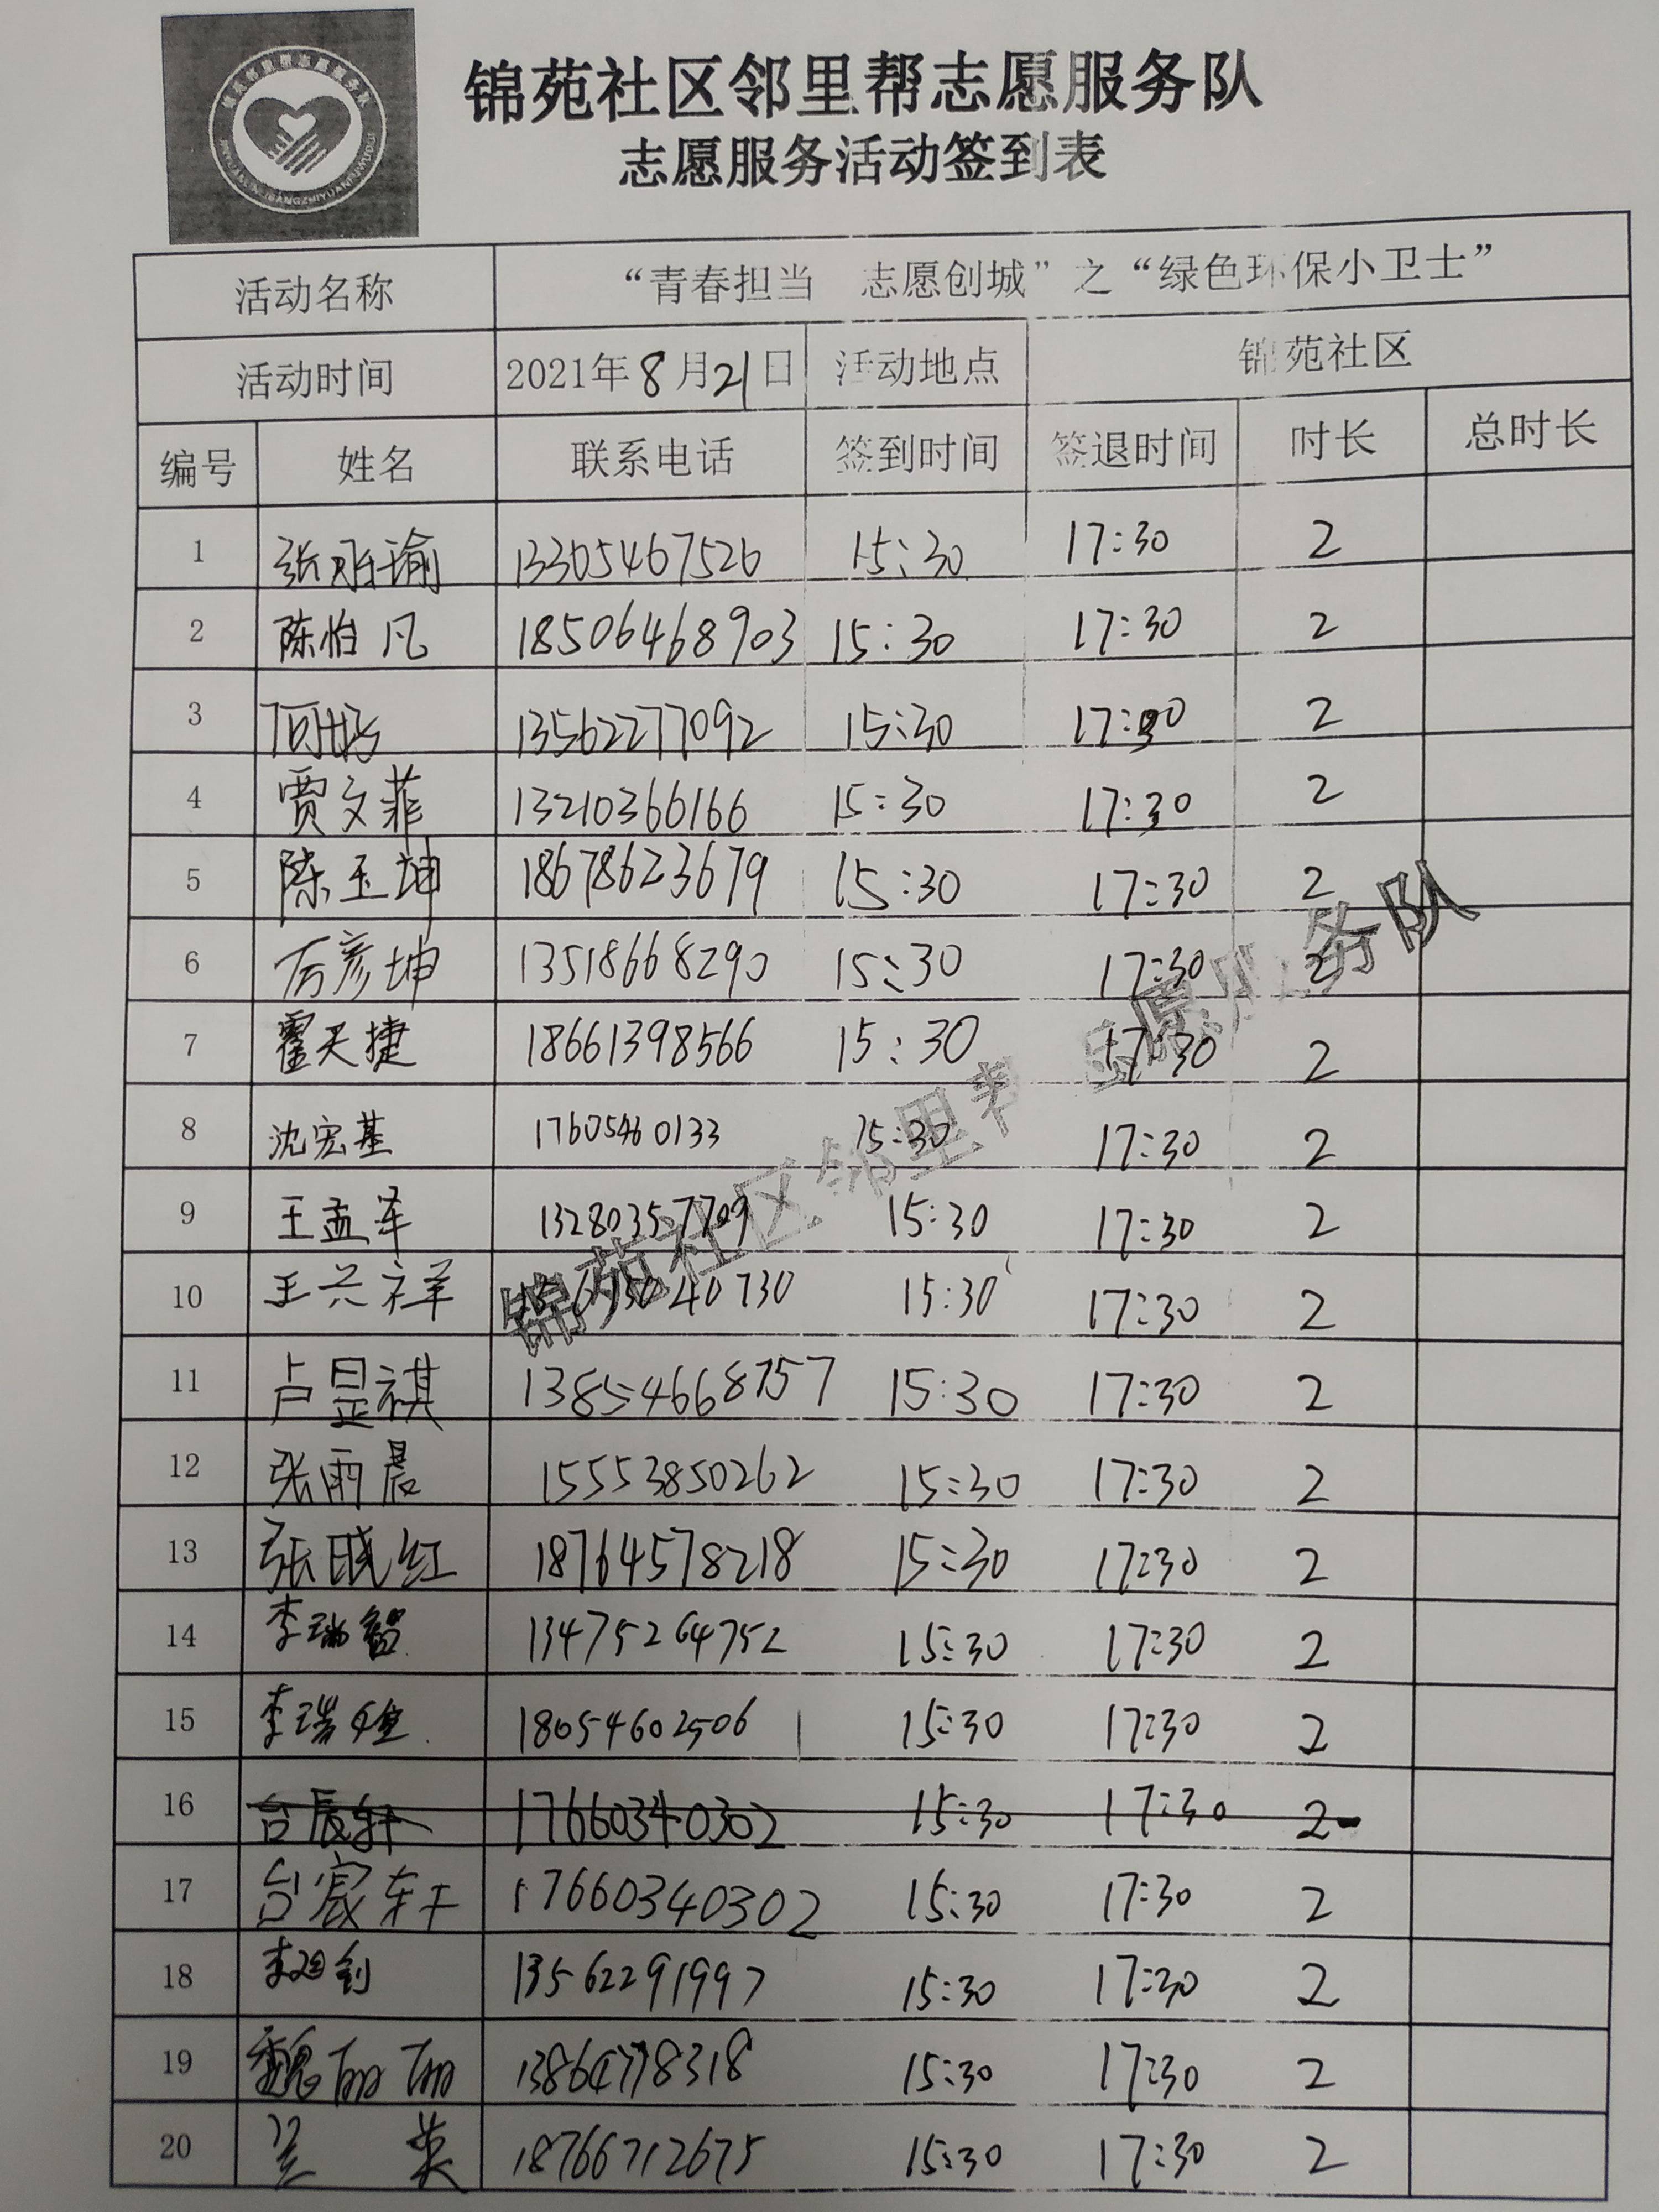 锦苑社区邻里帮志愿服务队
志愿服务活动签到表
活动名称 “青春担当 志愿创城”之“绿色环保小卫士”
活动时间 2021年8月21日 活动地点 锦苑社区
编号 姓名 联系电话 签到时间 签退时间 时长 总时长
1 13305467526 15:30 17:30 2
2 陈怡凡 18506468903 15:30 17:30 2
3 13562277092 15:30 17:30 2
4 贾文菲 13210366166 15:30 17:30 2
5 陈玉坤 18678623679 15:30 17:30 2
6 彦坤 13518668290 15:30 17:30 2
7 霍天捷 18661398566 15:30 17:30 2
8 沈宏基 17605460133 15:30 17:30 2
9 王孟泽 13280357709 15:30 17:30 2
10 王兴祥 15:30 17:30 2
11 卢昱祺 13854668757 15:30 17:30 2
12 张雨晨 15553850262 15:30 17:30 2
13 张晓红 18764578218 15:30 17:30 2
14 李瑞智 13475264752 15:30 17:30 2
15 李瑞 18054602506 15:30 17:30 2
16 台宸轩 17660340302 15:30 17:30 2
17 台宸轩 17660340302 15:30 17:30 2
18 13562291997 15:30 17:30 2
19 魏丽丽 13864778318 15:30 17:30 2
20 兰英 18766712675 15:30 17:30 2
锦苑社区邻里帮志愿服务队